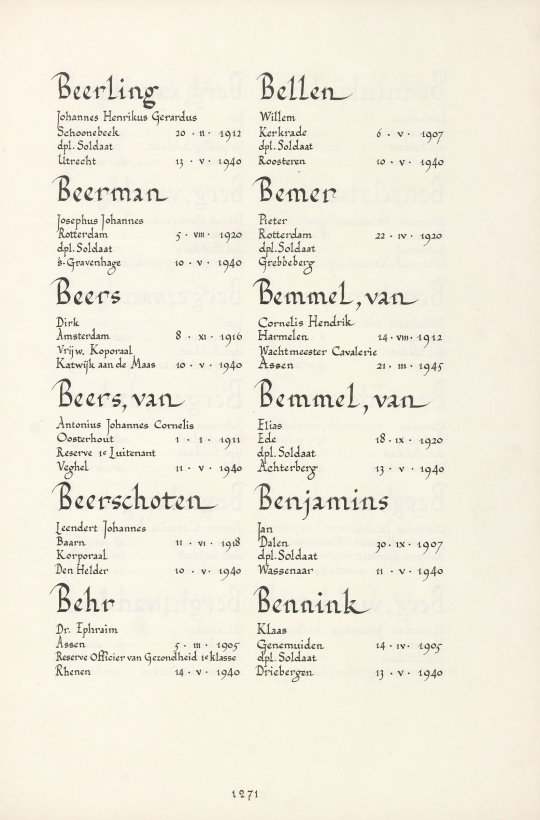 Beerling
Johannes Henrikus Gerardus
Schoonebeek 20 · II · 1912
dpl. Soldaat
Utrecht 13 · V · 1940
Beerman
Josephus Johannes
Rotterdam 5 · VIII · 1920
dpl. Soldaat
's-Gravenhage 10 · V · 1940
Beers
Dirk
Amsterdam 8 · XI · 1916
Vrijw. Koporaal
Katwijk aan de Maas 10 · V · 1940
Beers, van
Antonius Johannes Cornelis
Oosterhout 1 · 1 · 1911
Reserve 1e Luitenant
Veghel 11 · V · 1940
Beerschoten
Leendert Johannes
Baarn 11 · VI · 1918
Korporaal
Den Helder 10 · V · 1940
Behr
Dr. Ephraim
Assen 5 · III · 1905
Reserve Officier van Gezondheid 1e klasse
Rhenen 14 · V · 1940
Bellen
Willem
Kerkrade 6 · V · 1907
dpl. Soldaat
Roosteren 10 · V · 1940
Bemer
Pieter
Rotterdam 22 · IV · 1920
dpl. Soldaat
Grebbeberg
Bemmel, van
Cornelis Hendrik
Harmelen 14 · VIII · 1912
Wachtmeester Cavalerie
Assen 21 · III · 1945
Bemmel, van
Elias
Ede 18 · IX · 1920
dpl. Soldaat
Achterberg 13 · V · 1940
Benjamins
Jan
Dalen 30 · IX · 1907
dpl. Soldaat
Wassenaar 11 · V · 1940
Bennink
Klaas
Genemuiden 14 · IV · 1905
dpl. Soldaat
Driebergen 13 · V · 1940
1271